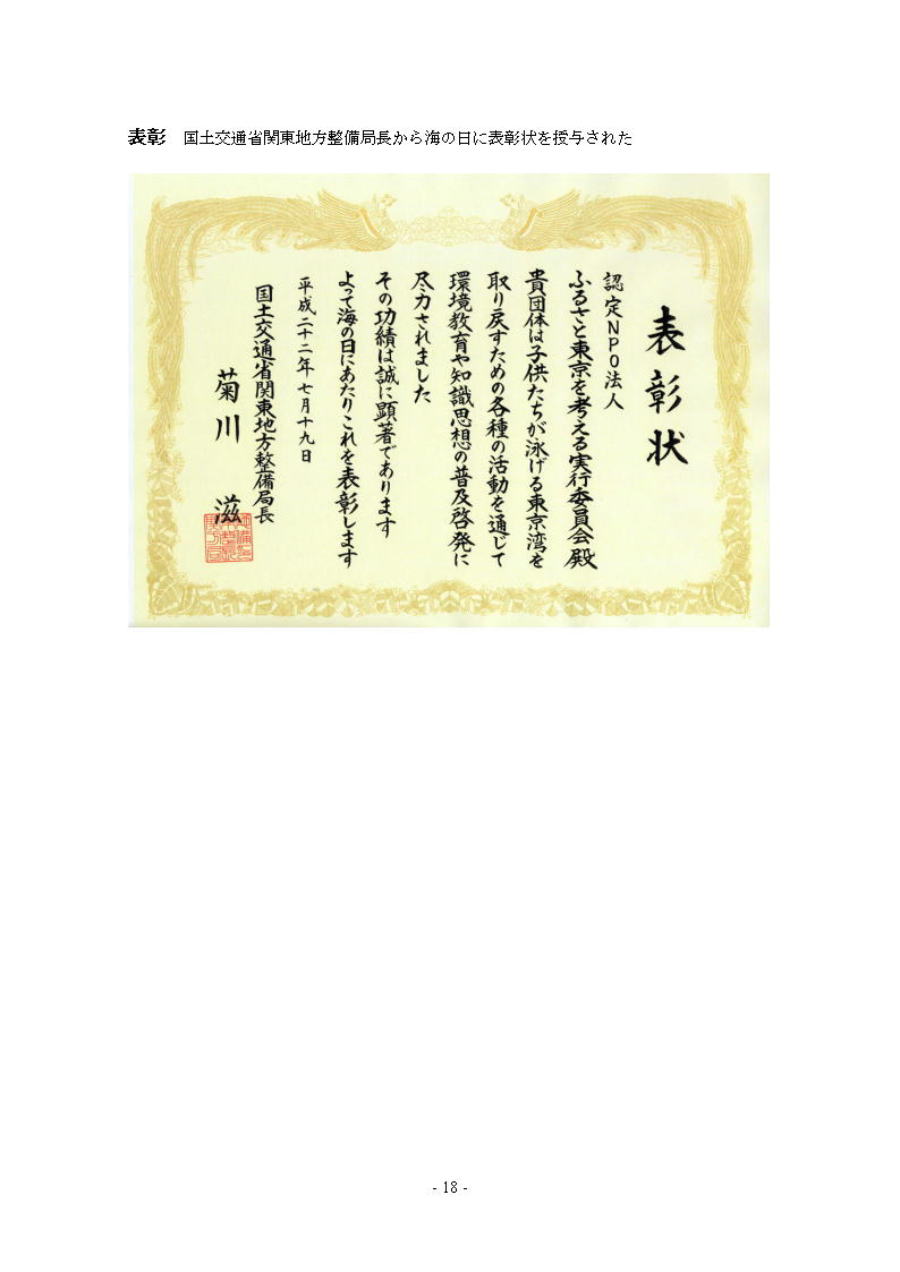 表彰　国土交通省関東地方整備局長から海の日に表彰状を授与された
表彰状
認定NPO法人
ふるさと東京を考える実行委員会殿
貴団体は子供たちが泳げる東京湾を
取り戻すための各種の活動を通じて
環境教育や知識思想の普及啓発に
尽力されました
その功績は誠に顕著であります
よって海の日にあたりこれを表彰します
平成二十二年七月十九日
国土交通省関東地方整備局長
菊川 滋
- 18 -